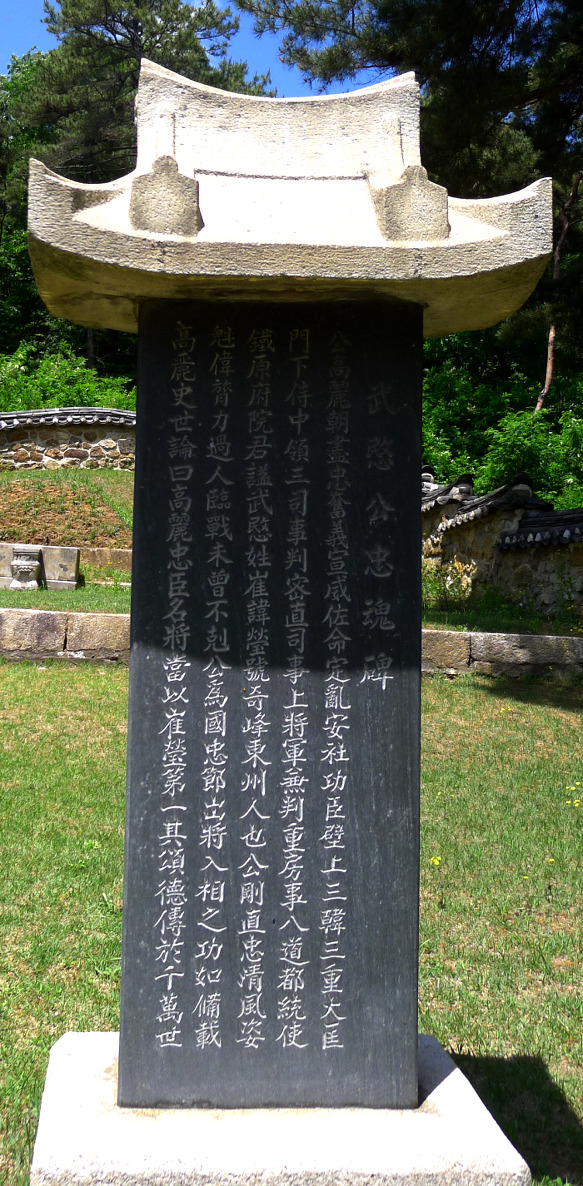 武愍公忠魂碑
公高麗朝盡忠奮義宣威佐命定亂安社功臣壁上三韓三重大匡
門下侍中領三司事判密直司事上將軍兼判重房事八道都統使
鐵原府院君諡武愍姓崔諱瑩號奇峰東州人也公剛直忠清風姿
魁偉膂力過人臨戰未曾不剋公為國忠節出將入相之功如備載
高麗史世論曰高麗忠臣名將當以崔瑩第一其頌德傳於千萬世